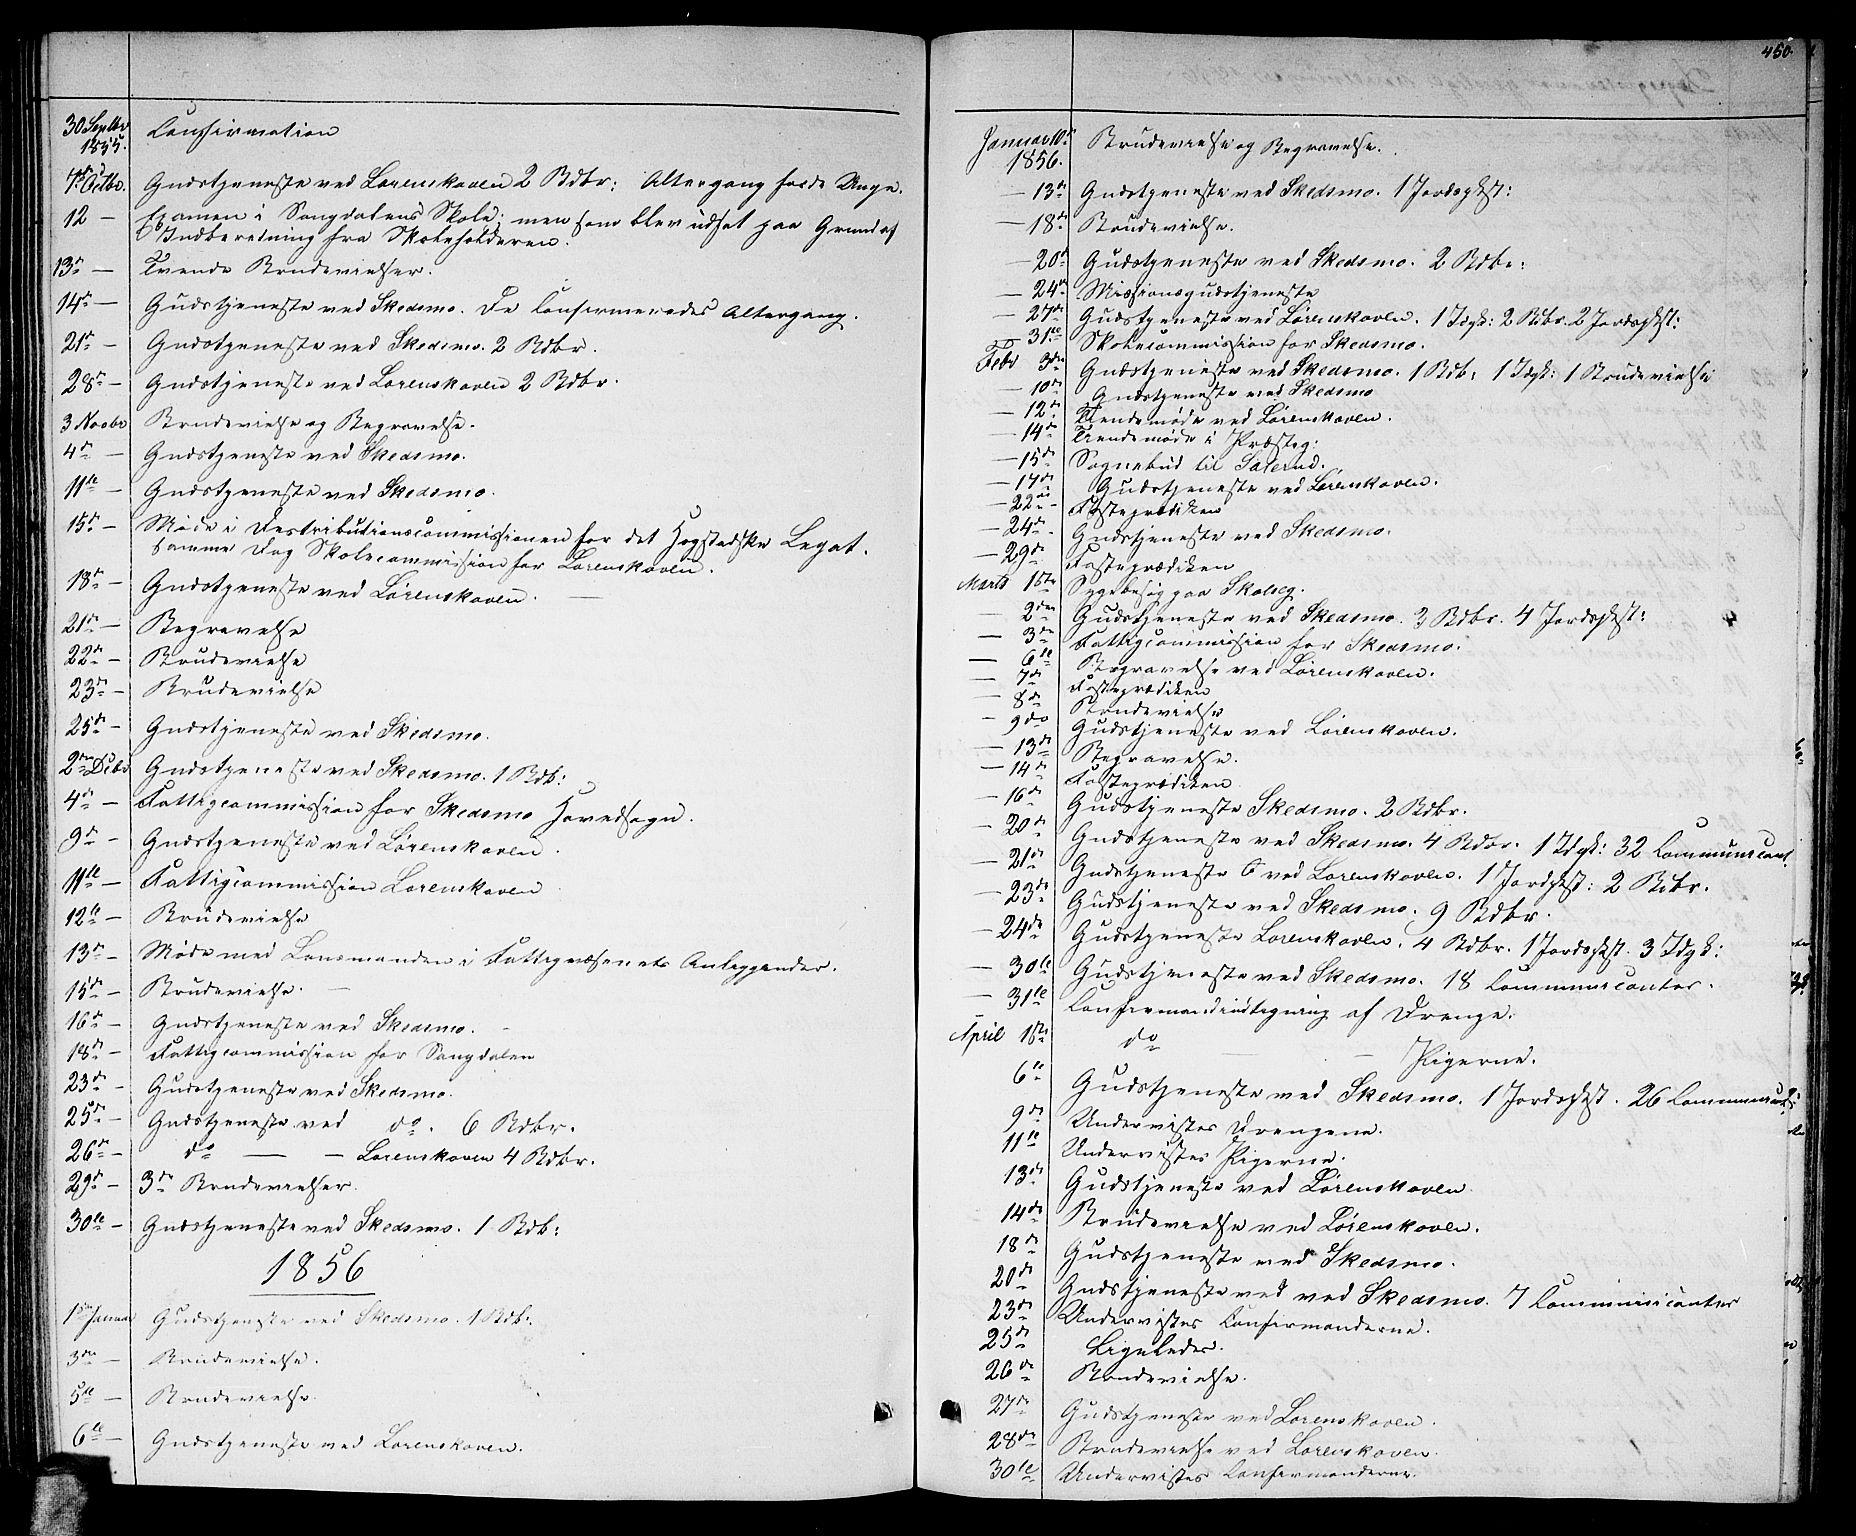 30 Septbr 1855. Confirmation
7de Octbr. Gudstjeneste ved Lørenskoven 2 Bdbr: Altergang for de Unge.
12 — Examen i Sangdalens Skole, men som blev udsat paa Grund af
Indberetning fra Skoleholderen.
13de — Tvende Brudevielser.
14de — Gudstjeneste ved Skedsmo. De Confirmeredes Altergang.
21de — Gudstjeneste ved Skedsmo. 2 Bdbr.
28de — Gudstjeneste ved Lørenskoven 2 Bdbr.
3 Novbr Brudevielse og Begravelse.
4de — Gudstjeneste ved Skedsmo.
11te — Gudstjeneste ved Skedsmo.
15de — Møde i Destributionscommissionen for det Hogstadske Legat.
samme Dag Skolecommission for Lørenskoven.
18de — Gudstjeneste ved Lørenskoven. —
21de — Begravelse
22de — Brudevielse
23de — Brudevielse
25de — Gudstjeneste ved Skedsmo.
2den Debr Gudstjeneste ved Skedsmo. 1 Bdb:
4de — Fattigcommission for Skedsmo Hovedsogn.
9de — Gudstjeneste ved Lørenskoven.
11te — Fattigcommission Lørenskoven
12te — Brudevielse
13de — Møde med Lensmanden i Fattigvæsenets Anliggender.
15de — Brudevielse. —
16de — Gudstjeneste ved Skedsmo. -
18de — Fattigcommission for Sangdalen
23de — Gudstjeneste ved Skedsmo.
25de — Gudstjeneste ved do. 6 Bdbr.
26de — do — — Lørenskoven 4 Bdbr.
29de — 3de Brudevielser.
30te — Gudstjeneste ved Skedsmo. 1 Bdb:
1856
1ste Januar Gudstjeneste ved Skedsmo. 1 Bdb:
3die — Brudevielse.
5te — Brudevielse.
6te — Gudstjeneste ved Lørenskoven.
450.
Januar 10de 1856. Brudevielse og Begravelse.
— 13de Gudstjeneste ved Skedsmo. 1 Jordsfkst:
— 18de Brudevielse.
— 20de Gudstjeneste ved Skedsmo. 2 Bdbr:
— 24de Missionsgudstjeneste
— 27de Gudstjeneste ved Lørenskoven. 1 Idgk: 2 Bdbr. 2 Jordsfkst:
— 31te Skolecommission for Skedsmo.
Febr 3die Gudstjeneste ved Skedsmo. 1 Bdb: 1 Idgk: 1 Brudevielse
— 10de Gudstjeneste ved Skedsmo
— 12te Tiendemøde ved Lørenskoven.
— 14de Tiendemøde i Præsteg:
— 15de Sognebud til Salerud.
— 17de Gudstjeneste ved Lørenskoven.
— 22de - Fasteprædiken
— 24de - Gudstjeneste ved Skedsmo.
— 29de Fasteprædiken
Marts 1ste Sygebesøg paa Skolseg.
— 2den Gudstjeneste ved Skedsmo. 3 Bdbr. 4 Jordsfkst:
— 3die Fattigcommission for Skedsmo.
— 6te Begravelse ved Lørenskoven.
— 7de Fasteprædiken
— 8de Brudevielse
— 9de Gudstjeneste ved Lørenskoven.
— 13de Begravelse.
— 14de Fasteprædiken
— 16de Gudstjeneste Skedsmo. 2 Bdbr.
— 20de Gudstjeneste ved Skedsmo. 4 Bdbr. 1 Idgk: 32 Communicant
— 21de Gudstjeneste ved Lørenskoven. 1 Jordfkst: 2 Bdbr.
— 23de Gudstjeneste ved Skedsmo. 9 Bdbr.
— 24de Gudstjeneste Lørenskoven. 4 Bdbr. 1 Jordsfkst. 3 Idgk:
— 30te Gudstjeneste ved Skedsmo. 18 Communicanter.
— 31te Confirmandindtegning af Drenge.
April 1ste do — Pigerne.
6te Gudstjeneste ved Skedsmo. 1 Jordsfkst. 26 Communicant:
9de Undervistes Drengene.
11te Undervistes Pigerne.
13de Gudstjeneste ved Lørenskoven
14de Brudevielse ved Lørenskoven.
18de Gudstjeneste ved Skedsmo.
20de Gudstjeneste ved ved Skedsmo. 7 Communicanter
23de Undervistes Confirmanderne.
25de Ligeledes.
26de Brudevielse.
27de Gudstjeneste ved Lørenskoven.
28de Brudevielse ved Lørenskoven.
30te Undervistes Confirmanderne.